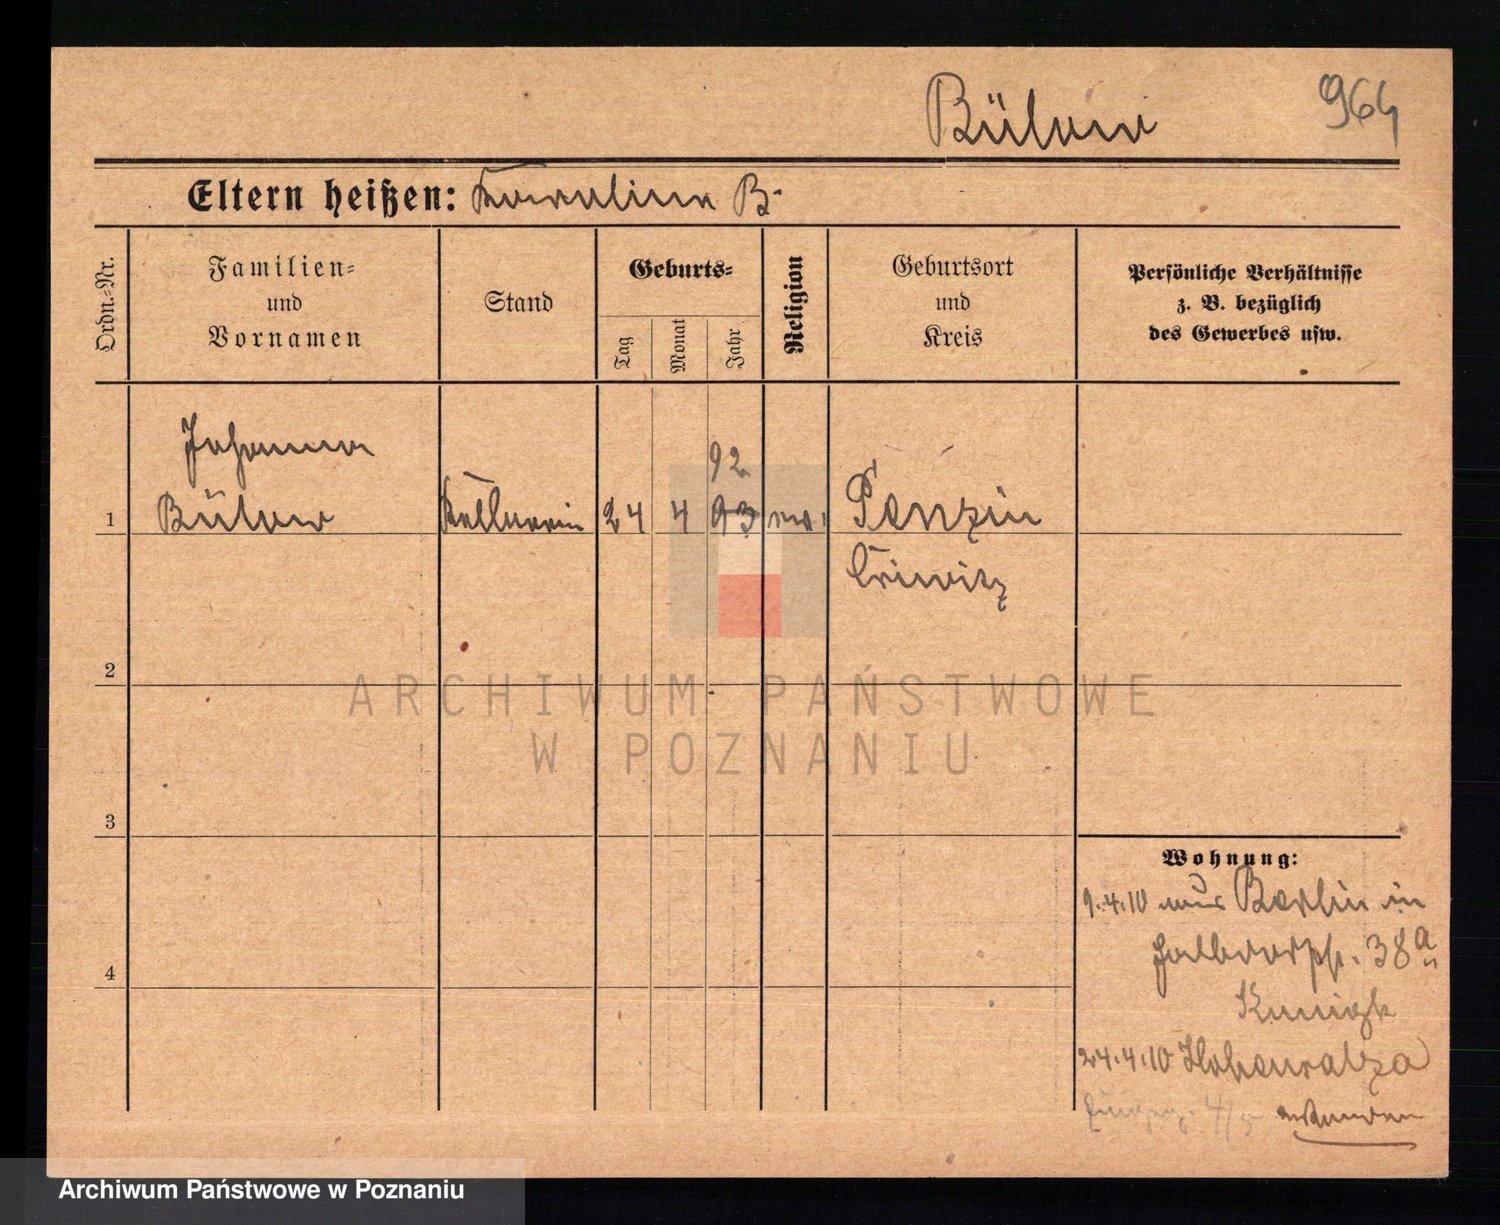 Bülow
964
Eltern heißen: Karoline B.
Ordn.=Nr.
Familien=
und
Vornamen
Stand
Geburts=
Tag
Monat
Jahr
Religion
Geburtsort
und
Kreis
Persönliche Verhältnisse
z. B. bezüglich
des Gewerbes usw.
Johanna
92
1 Bülow Kellnerin 24 4 93 ev. Penzin
Criwitz
2
3
4
Wohnung:
9.4.10 aus Berlin in
Halbdorfstr. 38a
24.4.10 Hohensalza
4/5
ARCHIWUM PAŃSTWOWE
W POZNANIU
Archiwum Państwowe w Poznaniu